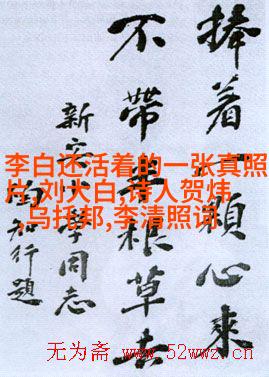 捧着一顆心來
不帶半根草去
新安小學同志
陶知行題
李白还活着的一张真照
片,刘大白,诗人贺炜
,乌托邦,李清照词
无为斋 www.52wwz.cn